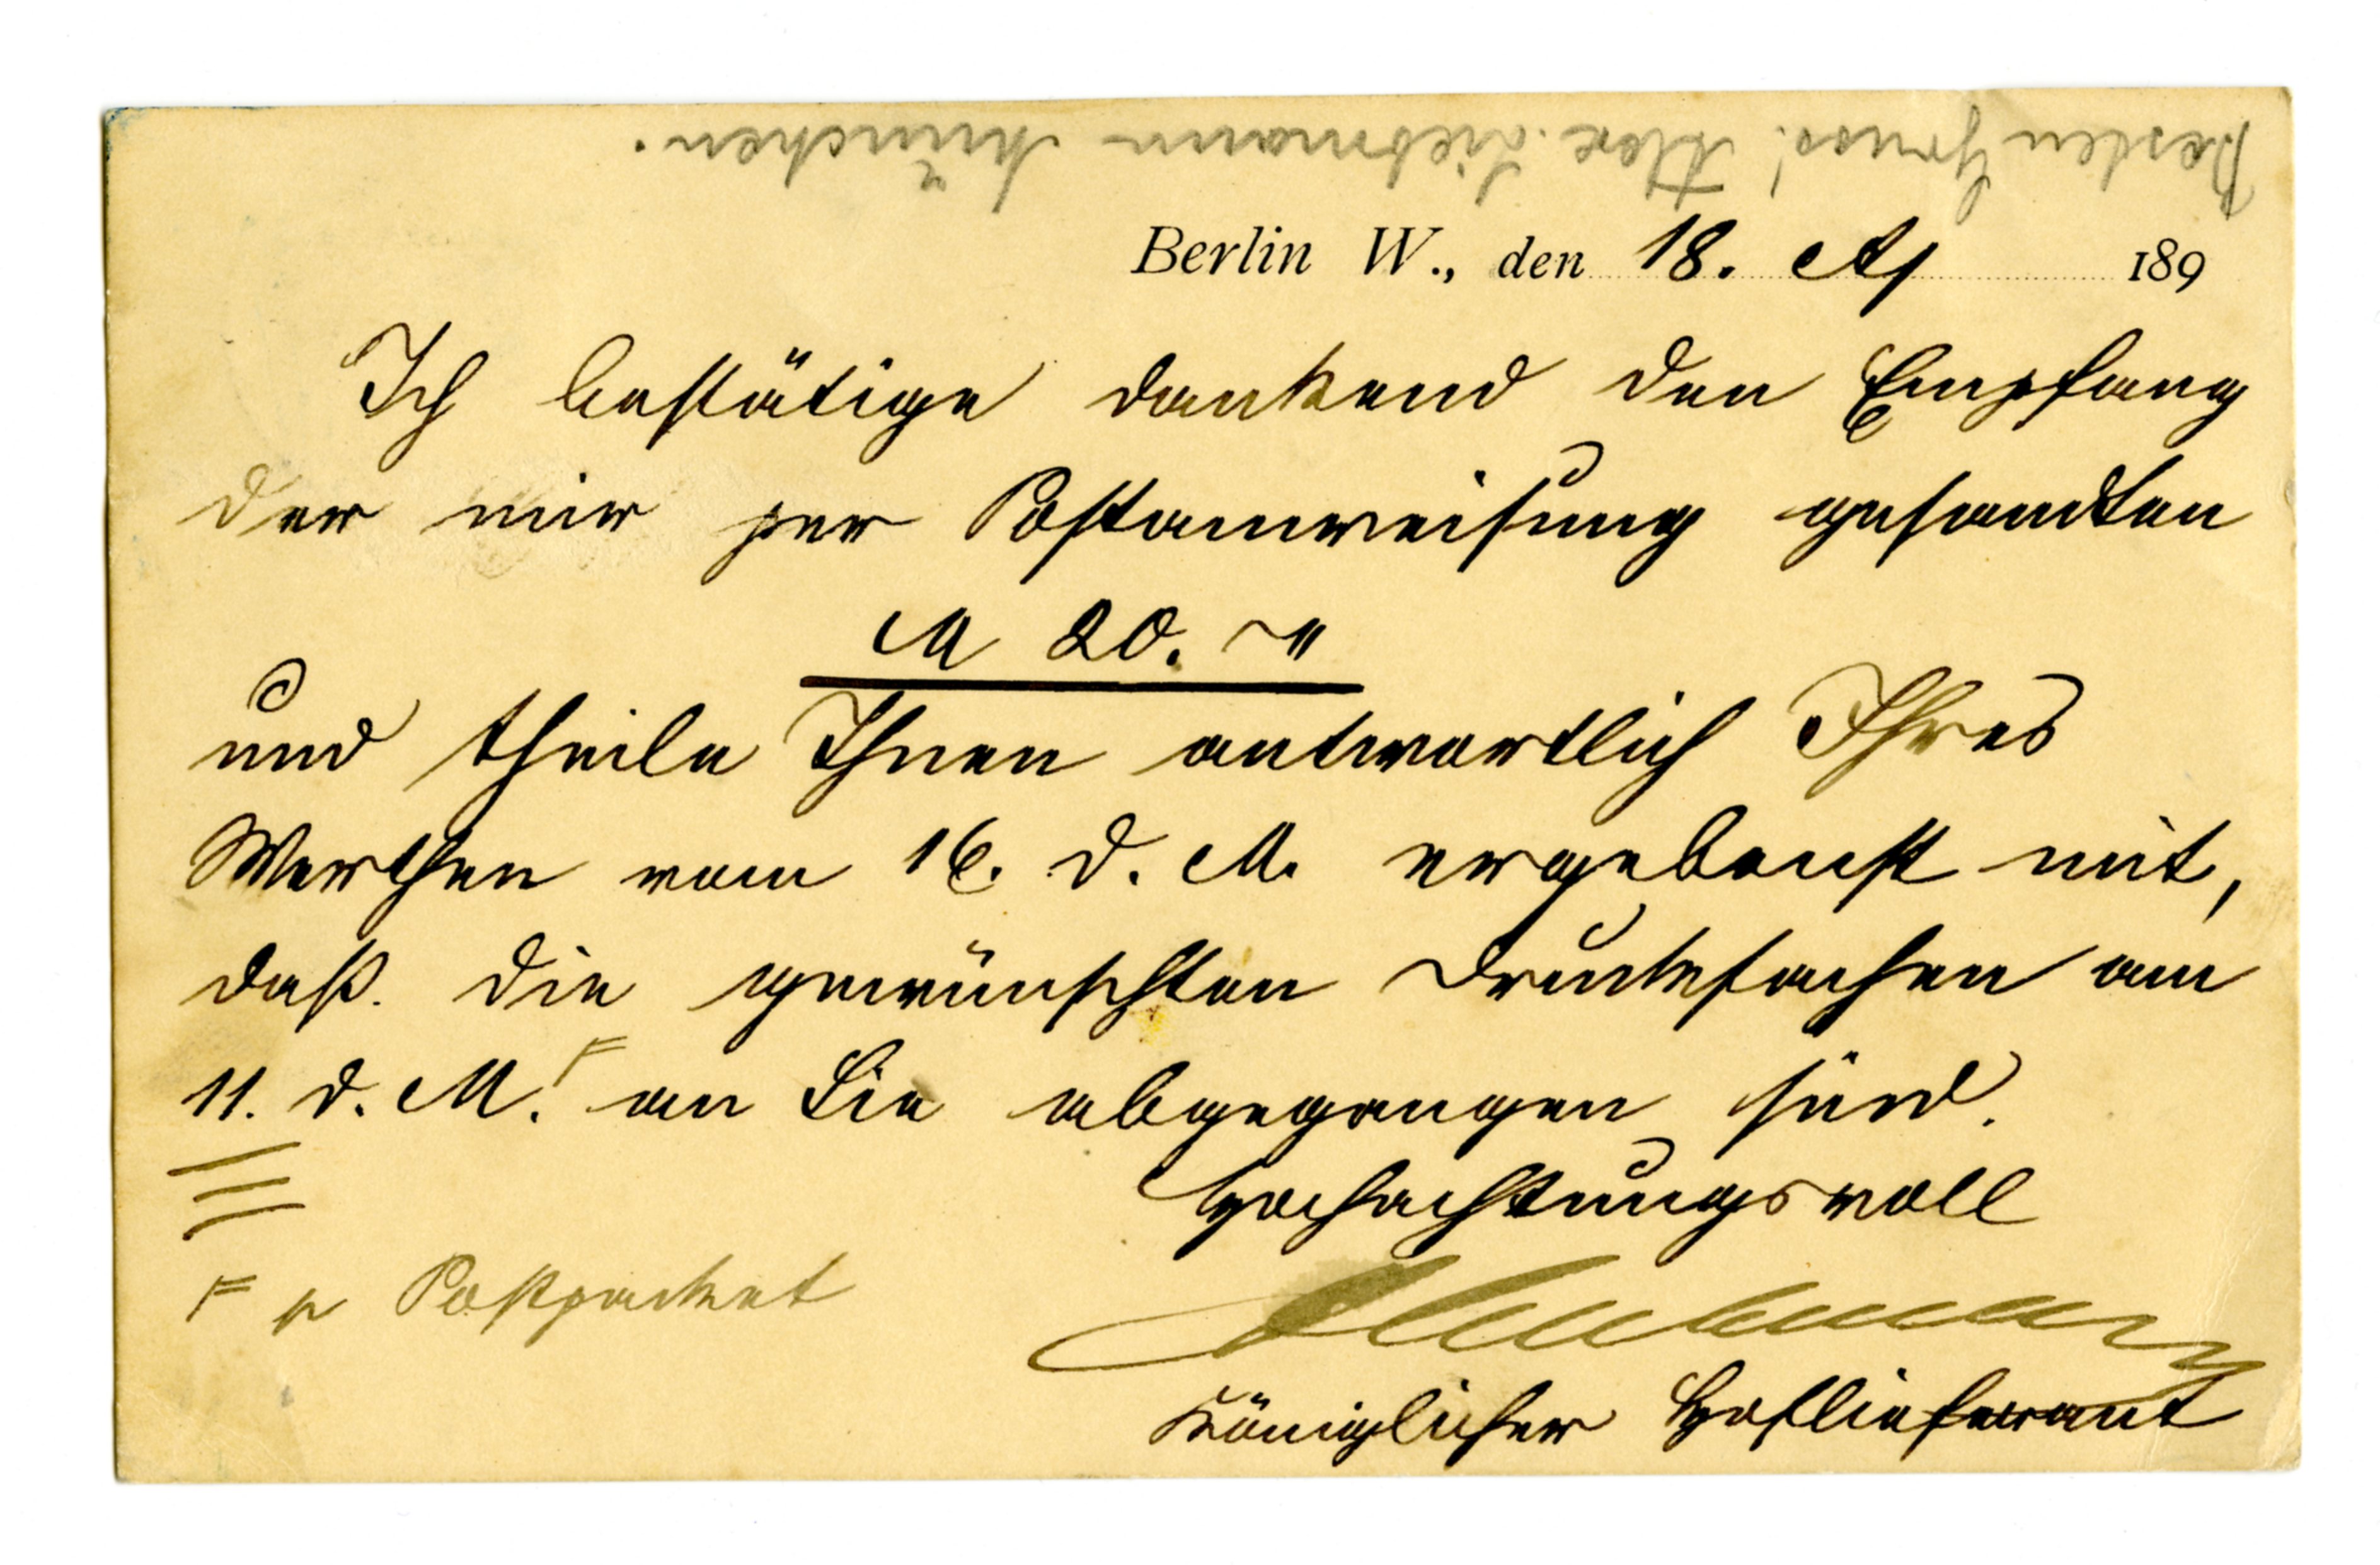 Besten Gruss! Alex. Liebmann München.
Berlin W., den 18. Ap 189
Ich bestätige dankend den Empfang
der mir per Postanweisung gesandten
M 20. ~"
und theile Ihnen antwortlich Ihres
Werthen vom 16. d. M. ergebenst mit,
daß die gewünschten Drucksachen am
11. d. M. an Sie abgegangen sind.
Hochachtungsvoll
p Postpacket
Königlicher Hoflieferant